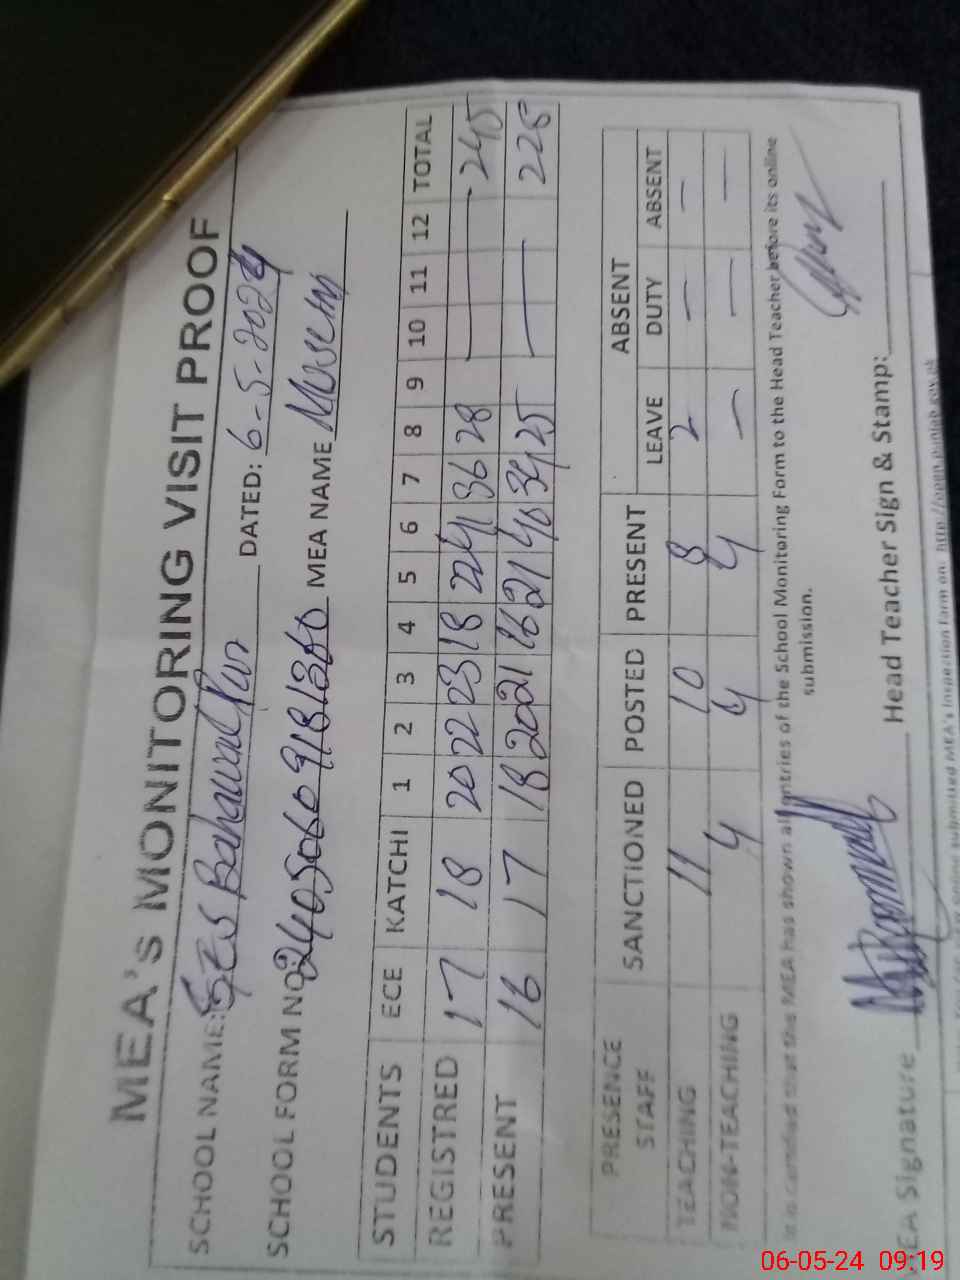 MEA's MONITORING VISIT PROOF
SCHOOL NAME: GES Bahawalpur DATED: 6-5-2024
SCHOOL FORM NO: MEA NAME
STUDENTS ECE KATCHI 1 2 3 4 5 6 7 8 9 10 11 12 TOTAL
REGISTRED 17 18 20 22 23 18 22 41 36 28 — 245
PRESENT 16 17 18 20 21 16 21 40 34 25 — 228
PRESENCE SANCTIONED POSTED PRESENT ABSENT
STAFF LEAVE DUTY ABSENT
TEACHING 11 10 8 2 — —
NON-TEACHING 4 4 4 — — —
It is certified that the MEA has shown all entries of the School Monitoring Form to the Head Teacher before its online
submission.
MEA Signature Head Teacher Sign & Stamp:
submitted MEA's Inspection Form on: http://open.punjab.gov.pk
06-05-24 09:19